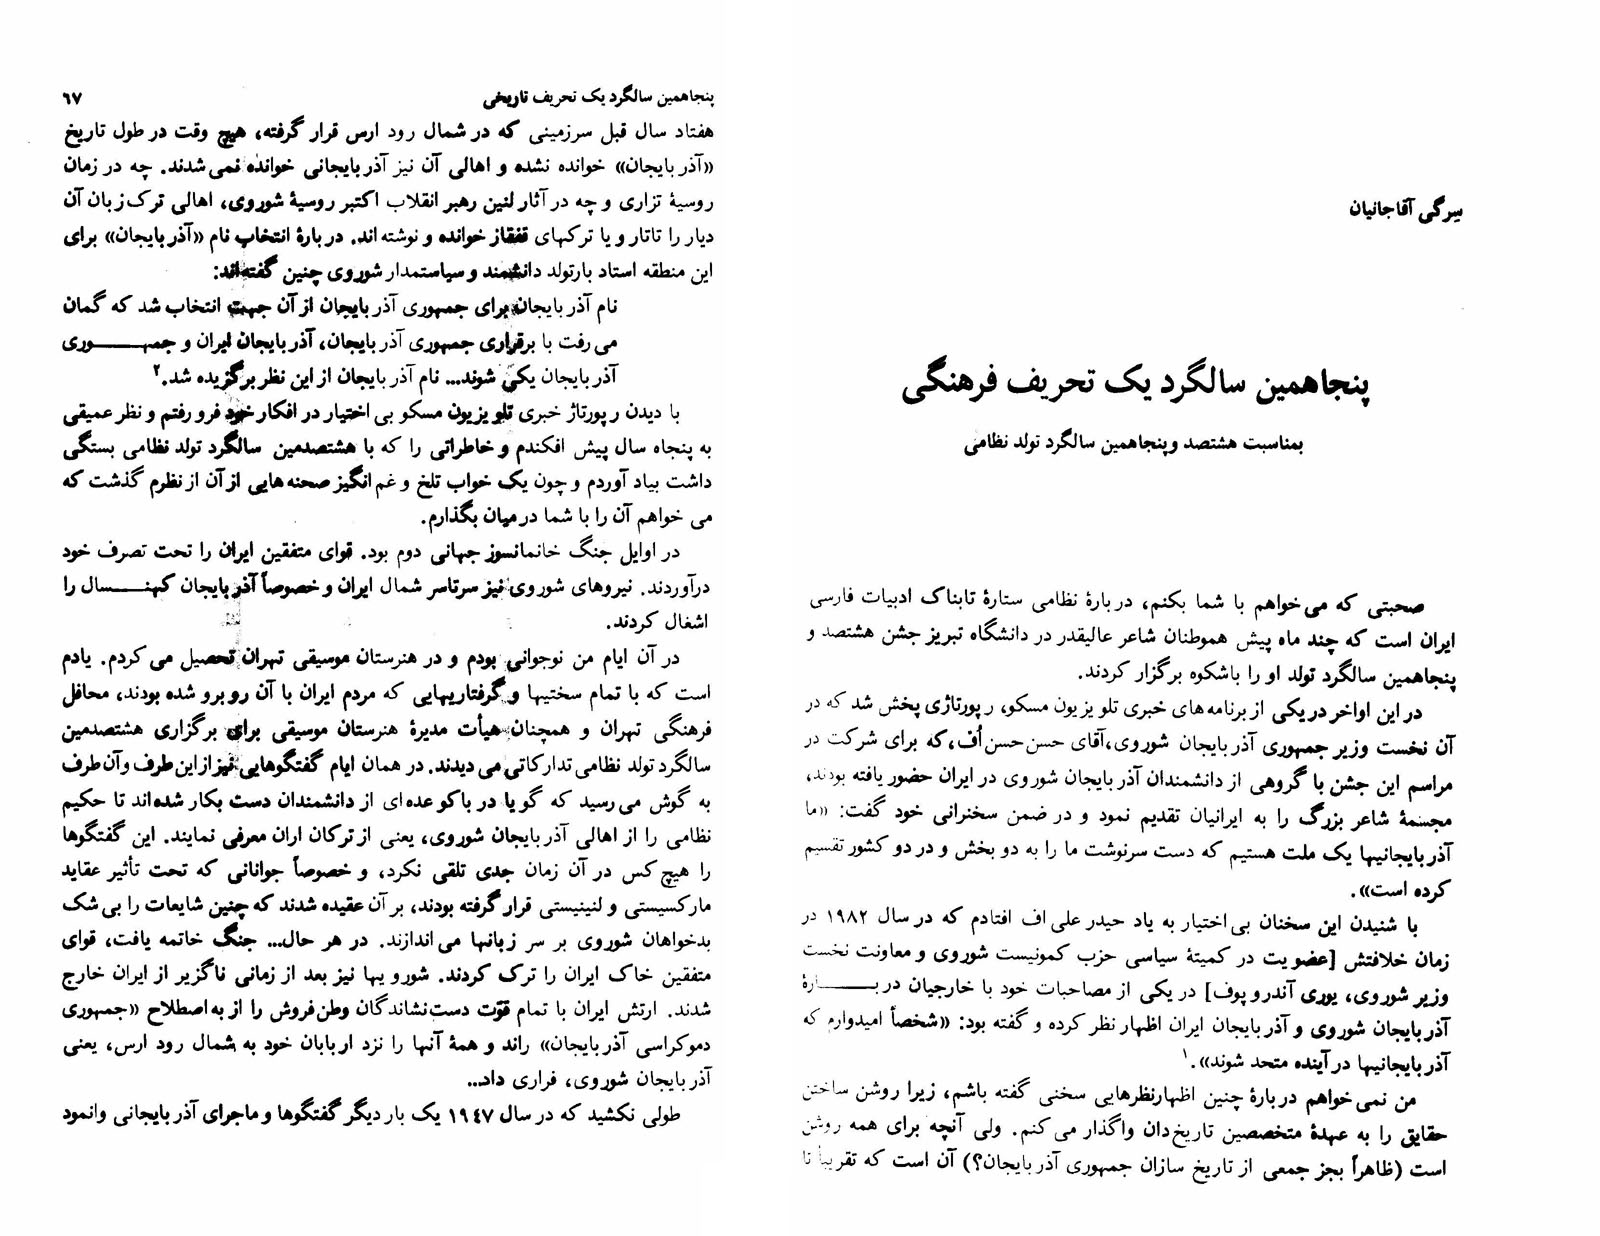 سِرگی آقاجانیان
پنجاهمین سالگرد یک تحریف فرهنگی
بمناسبت هشتصد و پنجاهمین سالگرد تولد نظامی
صحبتی که می‌خواهم با شما بکنم، دربارهٔ نظامی ستارهٔ تابناک ادبیات فارسی
ایران است که چند ماه پیش هموطنان شاعر عالیقدر در دانشگاه تبریز جشن هشتصد و
پنجاهمین سالگرد تولد او را باشکوه برگزار کردند.
در این اواخر در یکی از برنامه‌های خبری تلویزیون مسکو، رپورتاژی پخش شد که در
آن نخست وزیر جمهوری آذربایجان شوروی، آقای حسن حسن اُف، که برای شرکت در
مراسم این جشن با گروهی از دانشمندان آذربایجان شوروی در ایران حضور یافته بودند،
مجسمهٔ شاعر بزرگ را به ایرانیان تقدیم نمود و در ضمن سخنرانی خود گفت: «ما
آذربایجانیها یک ملت هستیم که دست سرنوشت ما را به دو بخش و در دو کشور تقسیم
کرده است».
با شنیدن این سخنان بی‌اختیار به یاد حیدر علی اف افتادم که در سال ۱۹۸۲ در
زمان خلافتش [عضویت در کمیتهٔ سیاسی حزب کمونیست شوروی و معاونت نخست
وزیر شوروی، یوری آندروپوف] در یکی از مصاحبات خود با خارجیان در بـــــارهٔ
آذربایجان شوروی و آذربایجان ایران اظهار نظر کرده و گفته بود: «شخصاً امیدوارم که
آذربایجانیها در آینده متحد شوند».۱
من نمی‌خواهم دربارهٔ چنین اظهارنظرهایی سخنی گفته باشم، زیرا روشن ساختن
حقایق را به عهدهٔ متخصصین تاریخ‌دان واگذار می‌کنم. ولی آنچه برای همه روشن
است (ظاهراً بجز جمعی از تاریخ سازان جمهوری آذربایجان؟) آن است که تقریباً تا
پنجاهمین سالگرد یک تحریف تاریخی ۶۷
هفتاد سال قبل سرزمینی که در شمال رود ارس قرار گرفته، هیچ وقت در طول تاریخ
«آذربایجان» خوانده نشده و اهالی آن نیز آذربایجانی خوانده نمی‌شدند. چه در زمان
روسیهٔ تزاری و چه در آثار لنین رهبر انقلاب اکتبر روسیهٔ شوروی، اهالی ترک زبان آن
دیار را تاتار و یا ترکهای قفقاز خوانده و نوشته‌اند. دربارهٔ انتخاب نام «آذربایجان» برای
این منطقه استاد بارتولد دانشمند و سیاستمدار شوروی چنین گفته‌اند:
نام آذربایجان برای جمهوری آذربایجان از آن جهت انتخاب شد که گمان
می‌رفت با برقراری جمهوری آذربایجان، آذربایجان ایران و جمهـــــوری
آذربایجان یکی شوند... نام آذربایجان از این نظر برگزیده شد.۲
با دیدن رپورتاژ خبری تلویزیون مسکو بی‌اختیار در افکار خود فرو رفتم و نظر عمیقی
به پنجاه سال پیش افکندم و خاطراتی را که با هشتصدمین سالگرد تولد نظامی بستگی
داشت بیاد آوردم و چون یک خواب تلخ و غم‌انگیز صحنه‌هایی از آن از نظرم گذشت که
می‌خواهم آن را با شما در میان بگذارم.
در اوایل جنگ خانمانسوز جهانی دوم بود. قوای متفقین ایران را تحت تصرف خود
درآوردند. نیروهای شوروی نیز سرتاسر شمال ایران و خصوصاً آذربایجان کهنـــــسال را
اشغال کردند.
در آن ایام من نوجوانی بودم و در هنرستان موسیقی تهران تحصیل می‌کردم. یادم
است که با تمام سختیها و گرفتاریهایی که مردم ایران با آن روبرو شده بودند، محافل
فرهنگی تهران و همچنان هیأت مدیرهٔ هنرستان موسیقی برای برگزاری هشتصدمین
سالگرد تولد نظامی تدارکاتی می‌دیدند. در همان ایام گفتگوهایی نیز از این طرف و آن طرف
به گوش می‌رسید که گویا در باکو عده‌ای از دانشمندان دست بکار شده‌اند تا حکیم
نظامی را از اهالی آذربایجان شوروی، یعنی از ترکان اران معرفی نمایند. این گفتگوها
را هیچ کس در آن زمان جدی تلقی نکرد، و خصوصاً جوانانی که تحت تأثیر عقاید
مارکسیستی و لنینیستی قرار گرفته بودند، بر آن عقیده شدند که چنین شایعات را بی‌شک
بدخواهان شوروی بر سر زبانها می‌اندازند. در هر حال... جنگ خاتمه یافت، قوای
متفقین خاک ایران را ترک کردند. شورویها نیز بعد از زمانی ناگزیر از ایران خارج
شدند. ارتش ایران با تمام قوّت دست‌نشاندگان وطن‌فروش را از به‌اصطلاح «جمهوری
دموکراسی آذربایجان» راند و همهٔ آنها را نزد اربابان خود به شمال رود ارس، یعنی
آذربایجان شوروی، فراری داد...
طولی نکشید که در سال ۱۹۴۷ یک بار دیگر گفتگوها و ماجرای آذربایجانی وانمود